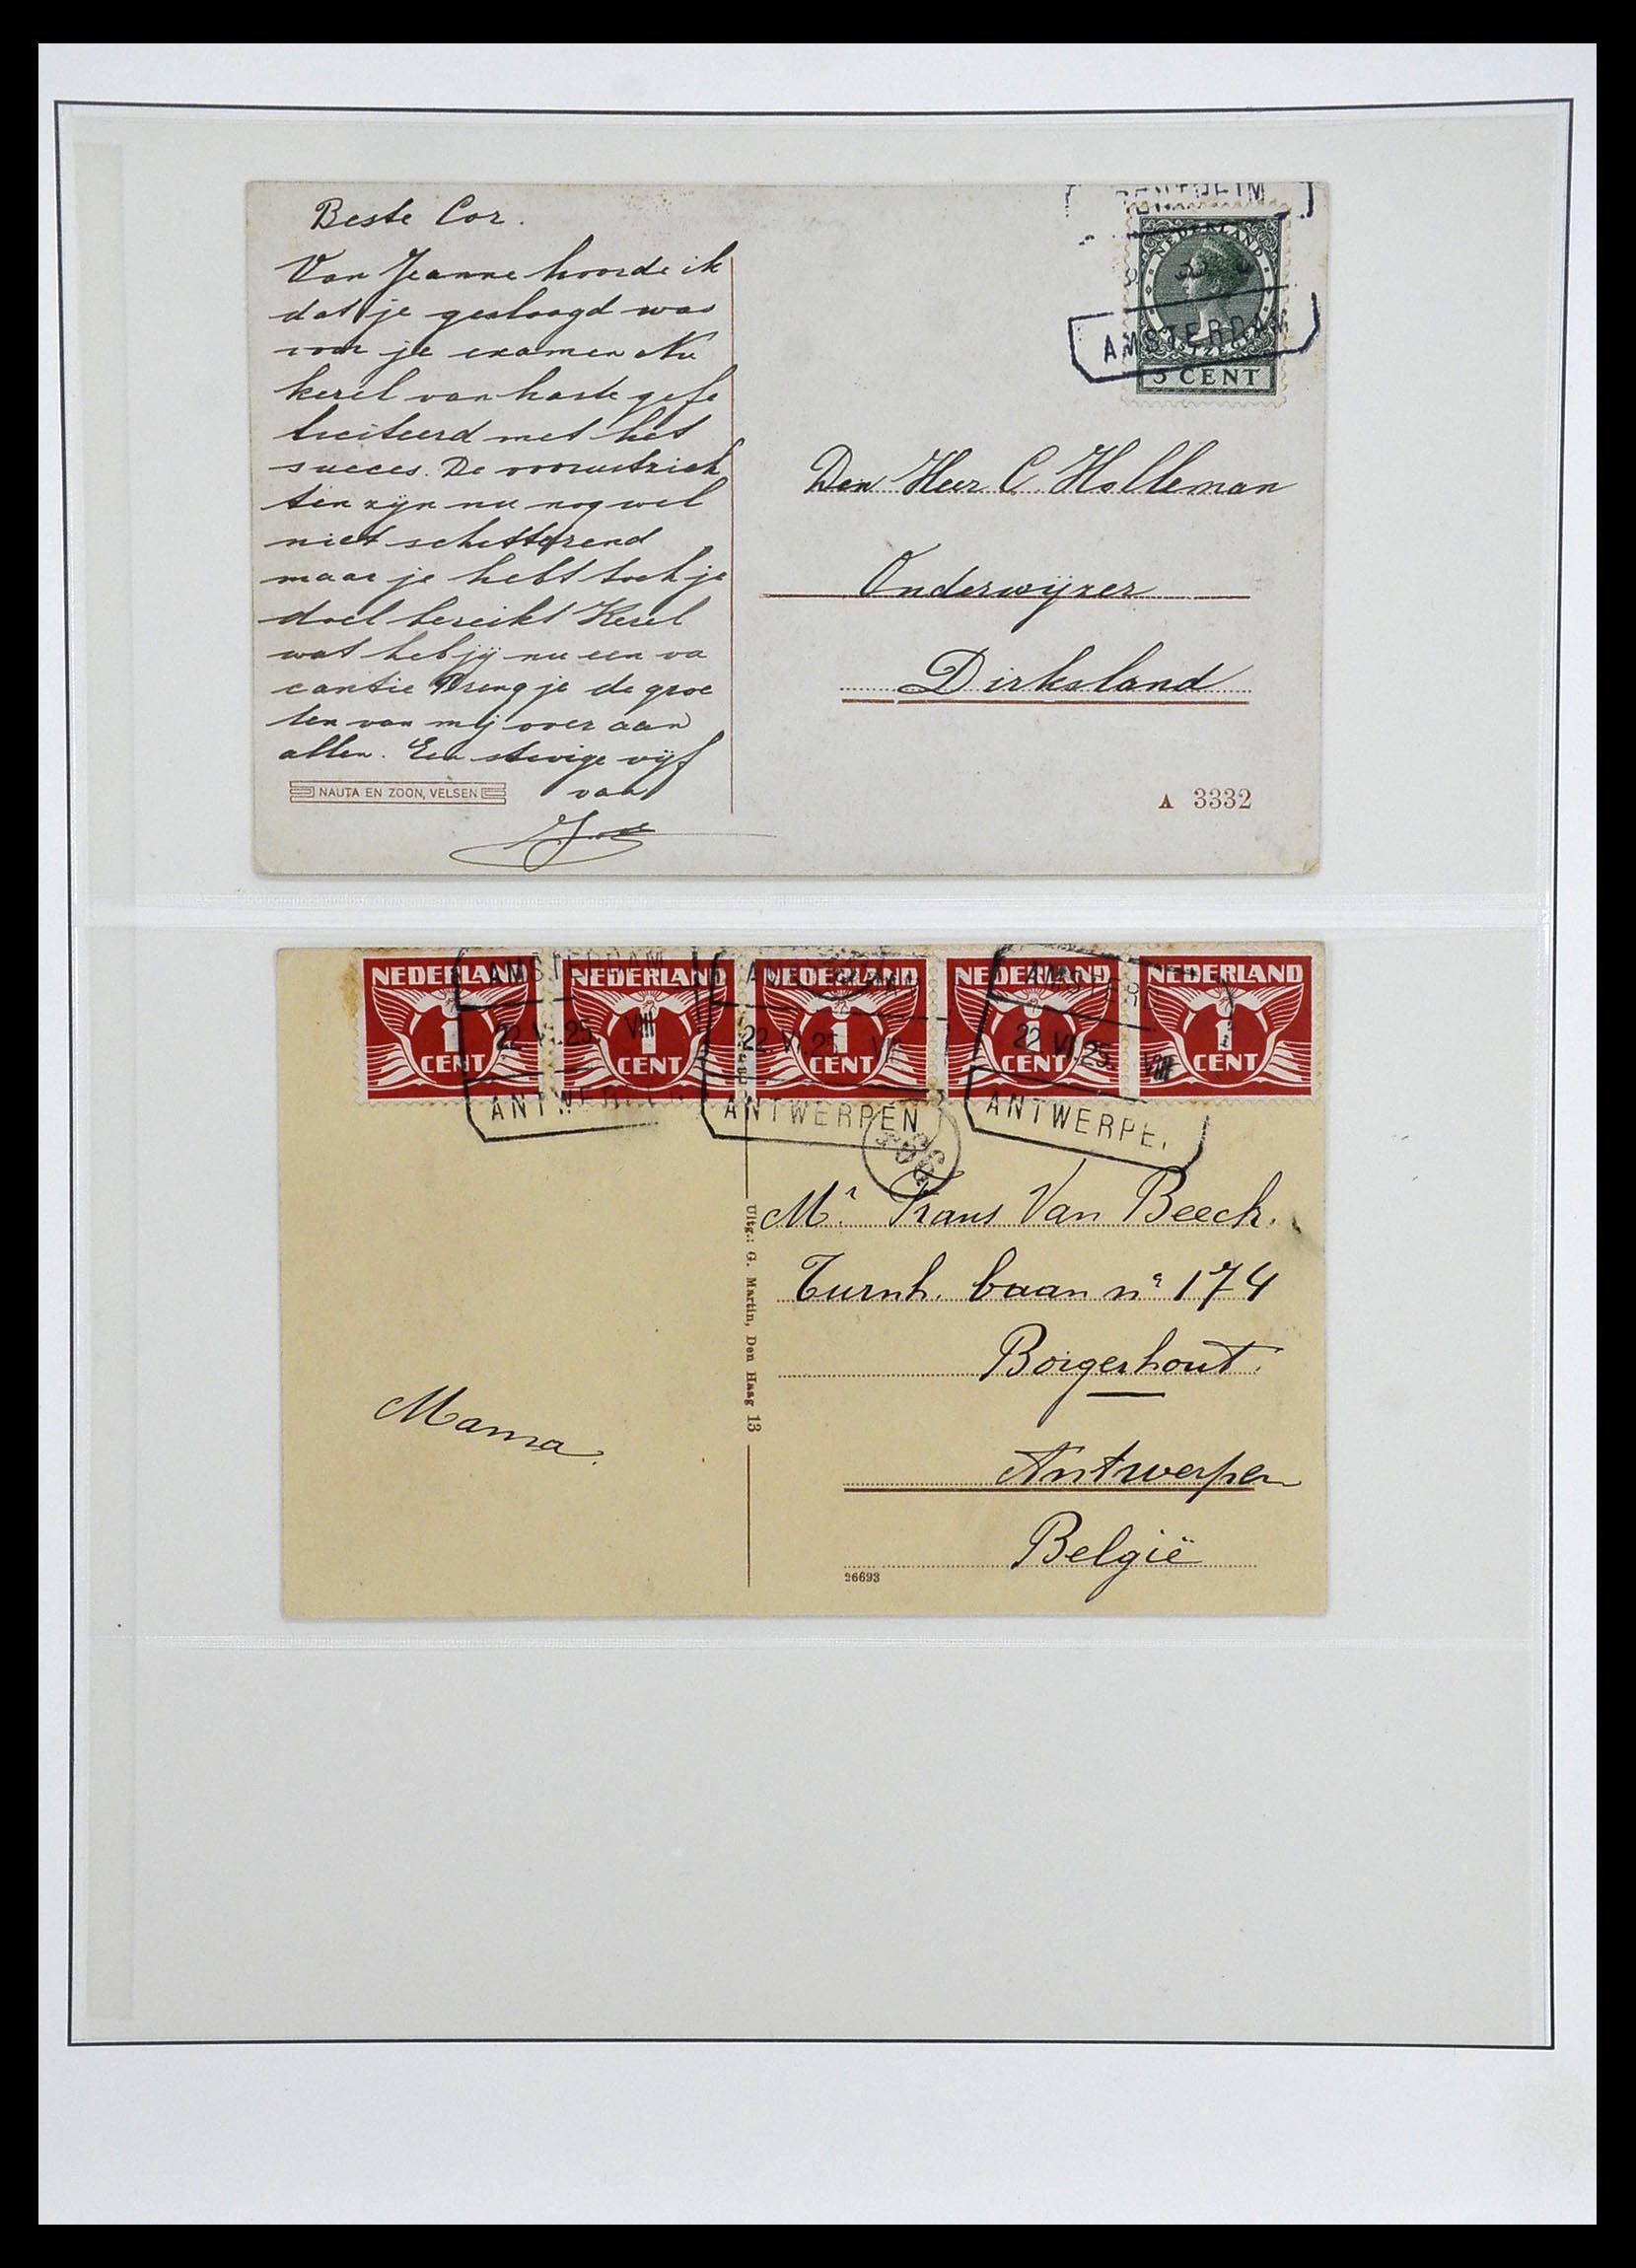 Beste Cor.
Van Jeanne hoorde ik
dat je geslaagd was
voor je examen Nu
kerel van harte gefe
liciteerd met het
succes. De vooruitzich
ten zijn nu nog wel
niet schitterend
maar je hebt toch je
doel bereikt Kerel
wat heb jij nu een va
cantie Breng je de groe
ten van mij over aan
allen. Een stevige vijf
van
NAUTA EN ZOON, VELSEN
NEDERLAND
AMSTERDAM
5 CENT
Den Heer C Holleman
Onderwijzer
Dirksland
A 3332
NEDERLAND NEDERLAND NEDERLAND NEDERLAND NEDERLAND
1 1 1 1 1
CENT CENT CENT CENT CENT
AMSTERDAM
22.VI.25. VIII
ANTWERPEN
22 VI.25
ANTWERPEN
AMSTER
22 VI.25. VIII
ANTWERPE
Mr Frans Van Beeck.
Turnh. baan no 174
Borgerhout.
Antwerpen
België
Mama.
Uitg.: G. Martin, Den Haag 13
26693